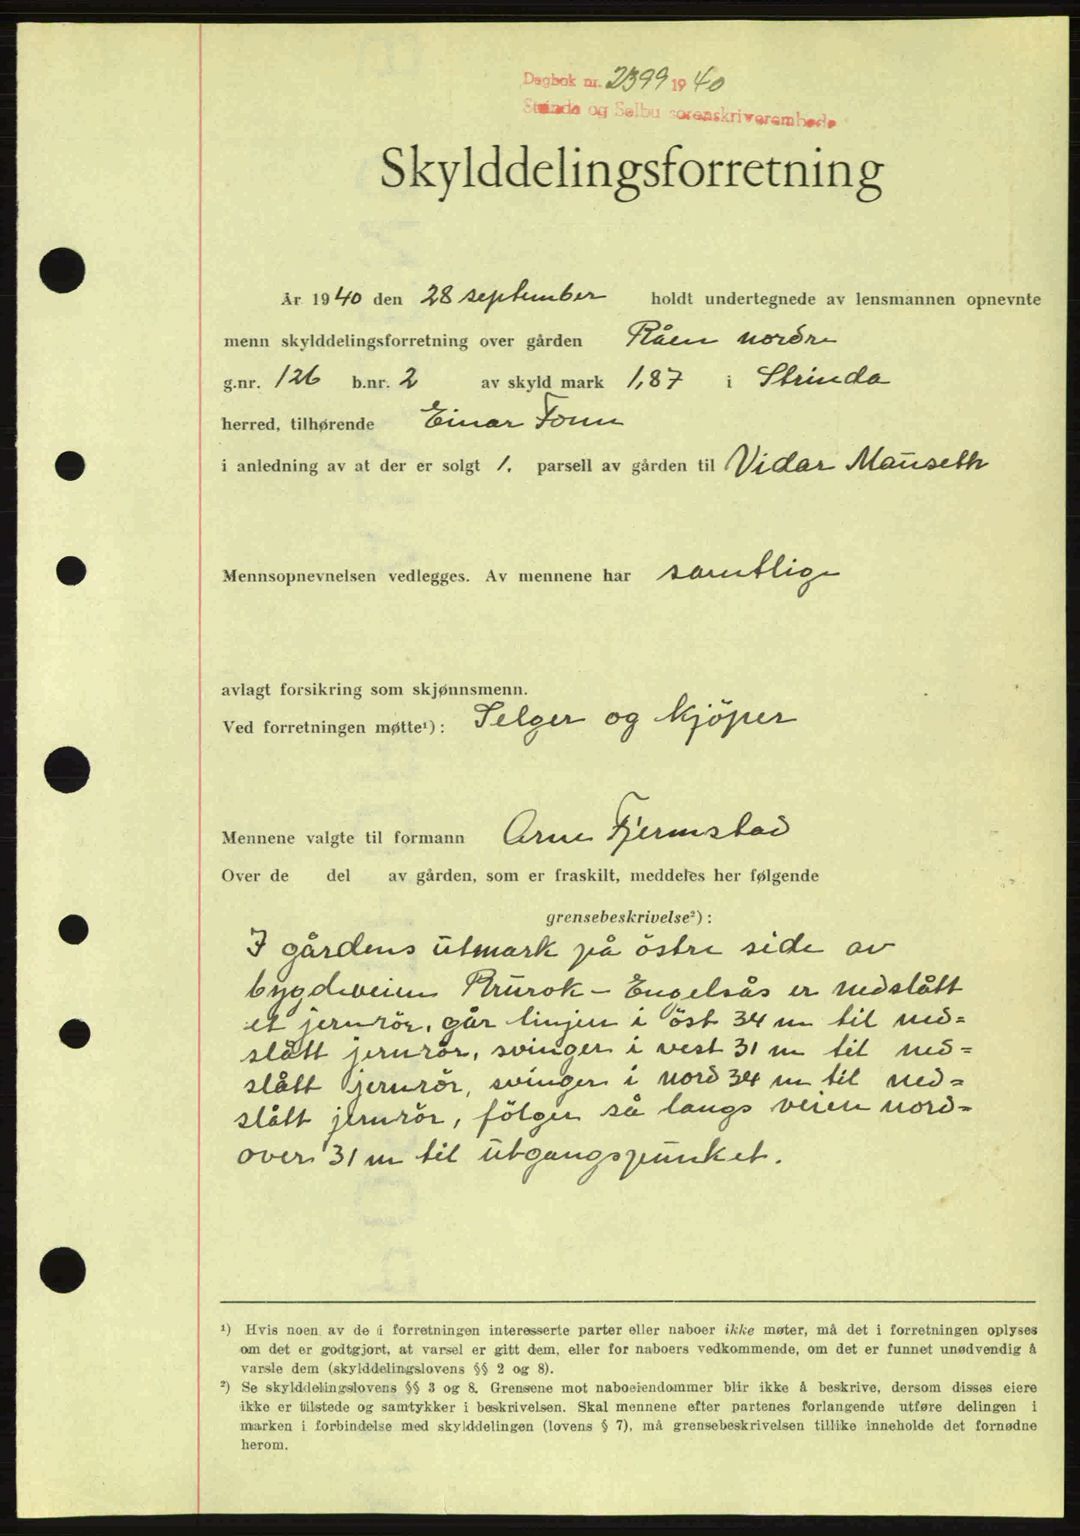 Dagbok nr. 2399 1940
Strinda og Selbu sorenskriverembede
Skylddelingsforretning
År 1940 den 28 september holdt undertegnede av lensmannen opnevnte
menn skylddelingsforretning over gården Råen nordre
g.nr. 126 b.nr. 2 av skyld mark 1,87 i Strinda
herred, tilhørende Einar Fonn
i anledning av at der er solgt 1. parsell av gården til Vidar Mauseth
Mennsopnevnelsen vedlegges. Av mennene har samtlige
avlagt forsikring som skjønnsmenn.
Ved forretningen møtte¹): Selger og kjöper
Mennene valgte til formann Arne Fjermstad
Over de del av gården, som er fraskilt, meddeles her følgende
grensebeskrivelse²):
I gårdens utmark på östre side av
bygdeveien Brurok - Engelsås er nedslått
et jernrör, går linjen i öst 34 m til ned=
slått jernrör, svinger i vest 31 m til ned=
slått jernrör, svinger i nord 34 m til ned=
slått jernrör, fölger så langs veien nord=
over 31 m til utgangspunket.
¹) Hvis noen av de i forretningen interesserte parter eller naboer ikke møter, må det i forretningen oplyses
om det er godtgjort, at varsel er gitt dem, eller for naboers vedkommende, om det er funnet unødvendig å
varsle dem (skylddelingslovens §§ 2 og 8).
²) Se skylddelingslovens §§ 3 og 8. Grensene mot naboeiendommer blir ikke å beskrive, dersom disses eiere
ikke er tilstede og samtykker i beskrivelsen. Skal mennene efter partenes forlangende utføre delingen i
marken i forbindelse med skylddelingen (lovens § 7), må grensebeskrivelsen tillike inneholde det fornødne
herom.